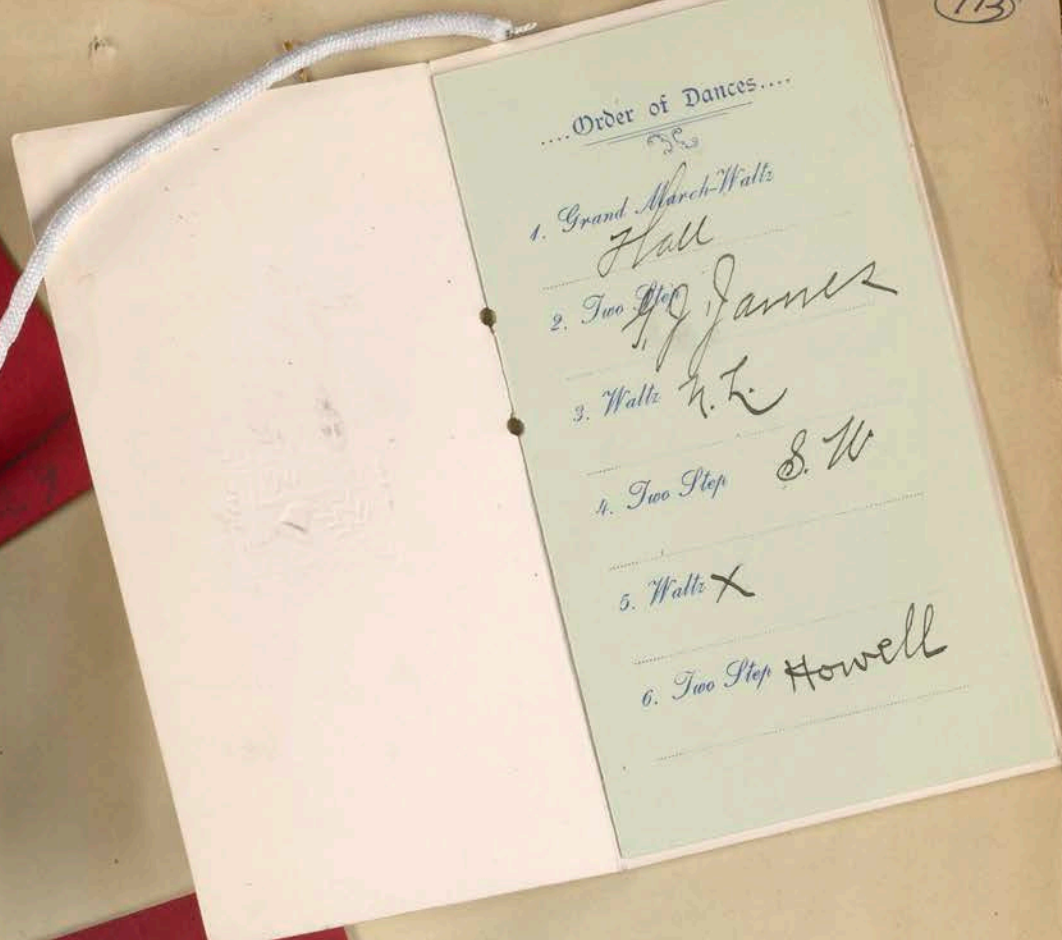 ....Order of Dances....
1. Grand March-Waltz
Hall
2. Two Step
J. James
3. Waltz N. L.
4. Two Step S. W
5. Waltz X
6. Two Step Howell